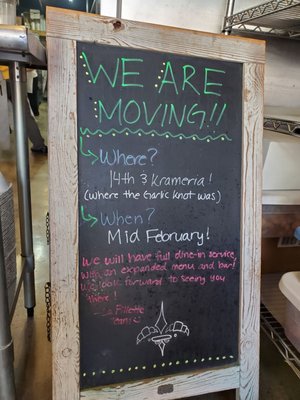 WE ARE
MOVING!!
Where?
14th & Krameria!
(where the Garlic Knot was)
When?
Mid February!
We will have full dine-in service
with an expanded menu and bar!
We look forward to seeing you
there!
- La Fillette
Team